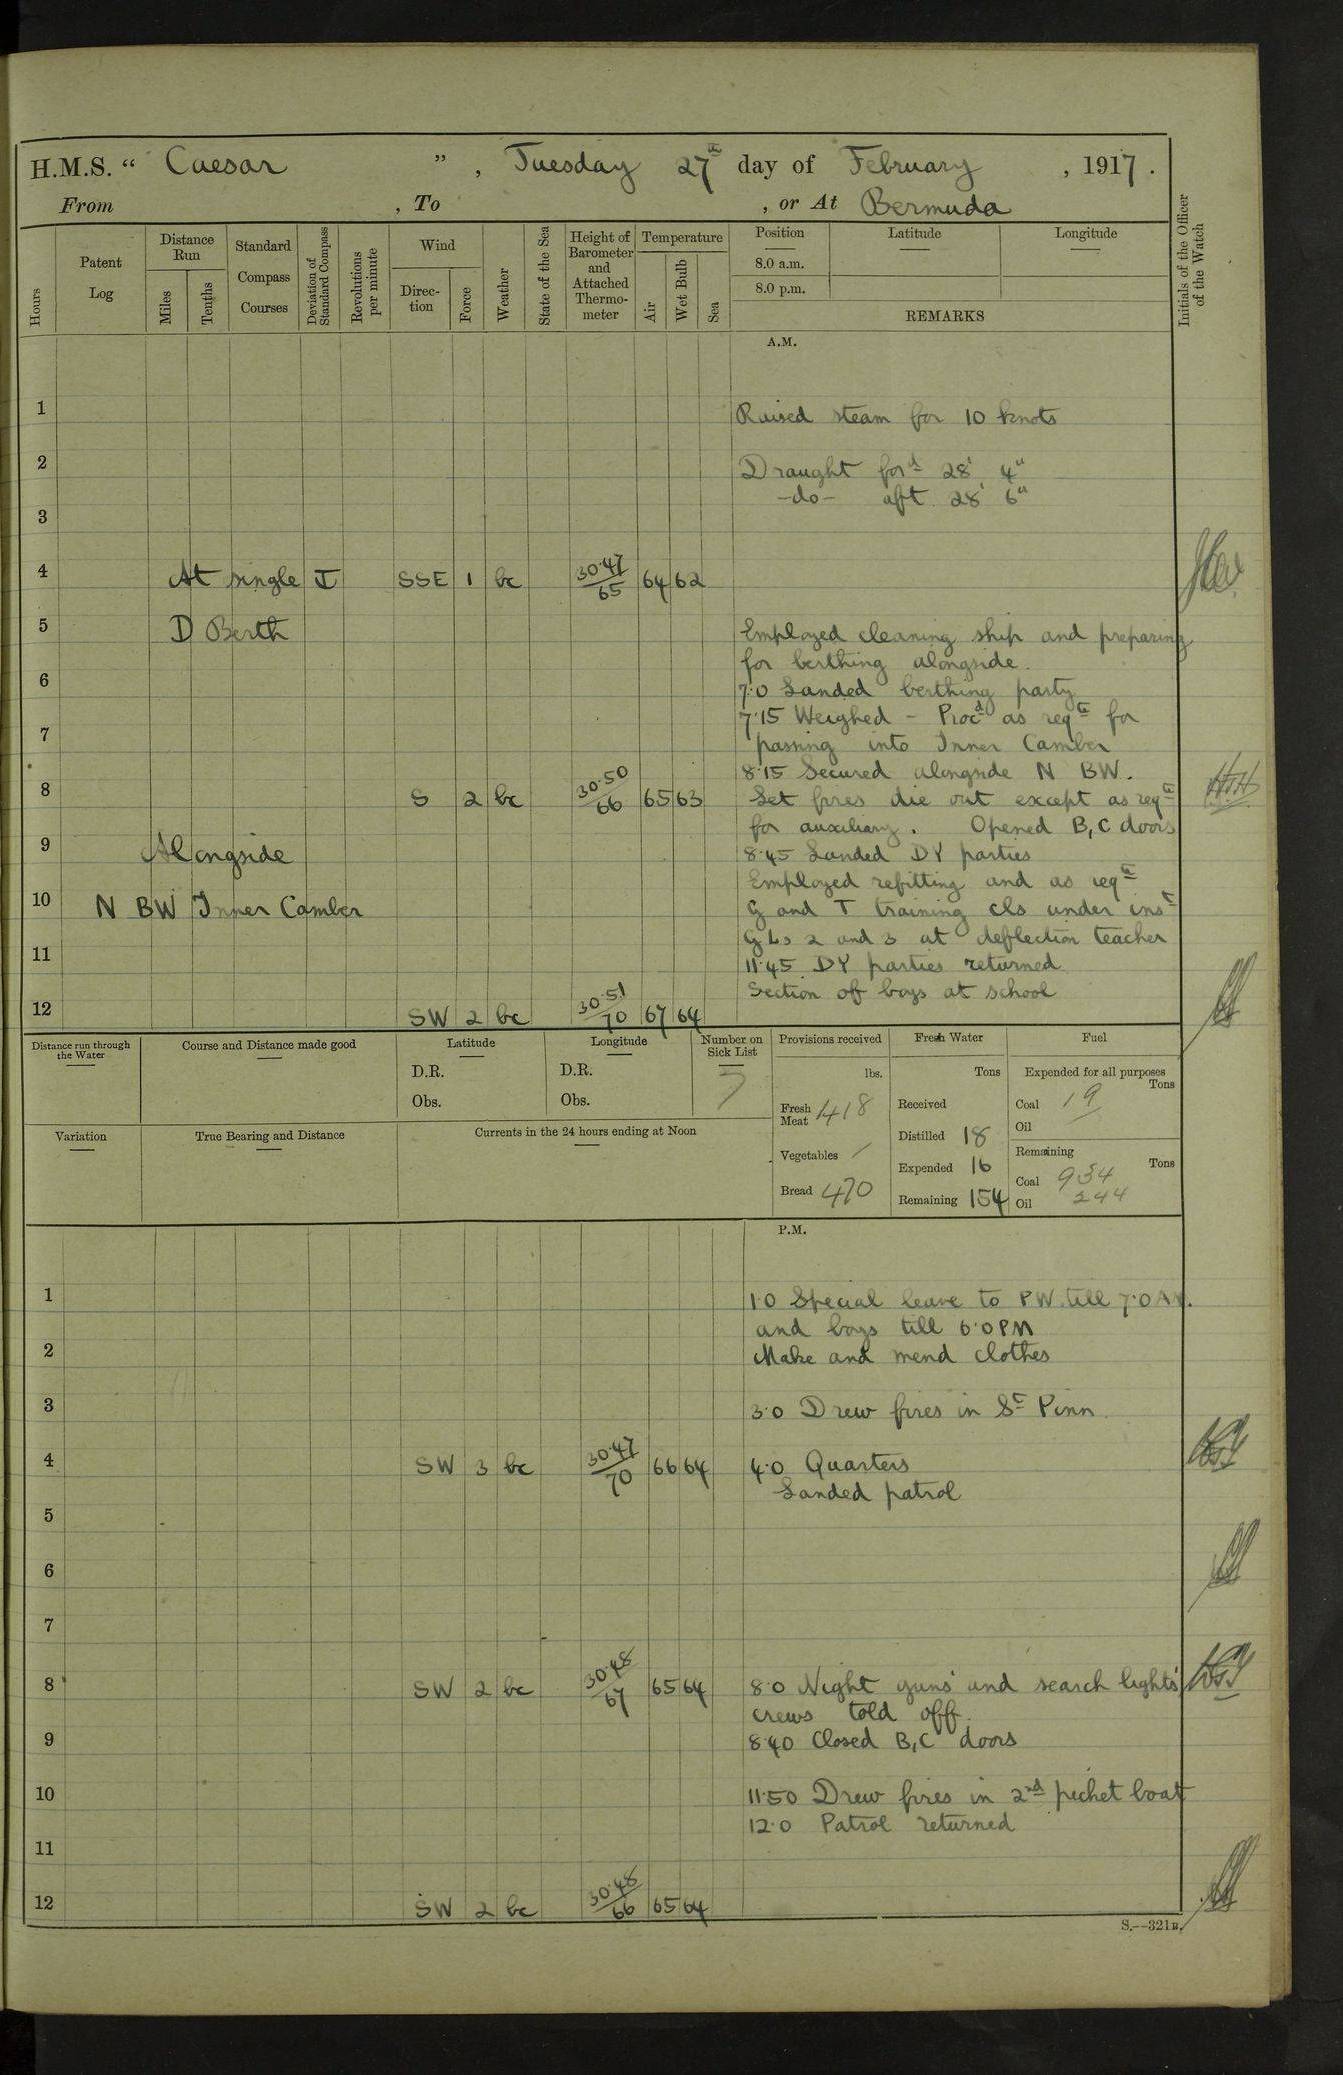 H.M.S. " Caesar ", Tuesday 27th day of February, 1917.
From , To , or At Bermuda
Hours
Patent Log
Distance Run
Miles
Tenths
Standard Compass Courses
Deviation of Standard Compass
Revolutions per minute
Wind
Direction
Force
Weather
State of the Sea
Height of Barometer and Attached Thermometer
Temperature
Air
Wet Bulb
Sea
Position
8.0 a.m.
8.0 p.m.
Latitude
Longitude
REMARKS
Initials of the Officer of the Watch
A.M.
1
Raised steam for 10 knots
2
Draught ford 28' 4"
-do- aft 28' 6"
3
4 At single SSE 1 bc 30.47/65 64 62
5 D Berth
Employed cleaning ship and preparing
for berthing alongside.
6
7.0 Landed berthing party
7.15 Weighed - Procd as reqte for
7
passing into Inner Camber
8.15 Secured alongside N BW.
8 S 2 bc 30.50/66 65 63
Let fires die out except as reqte
for auxiliary. Opened B, C doors
9 Alongside
8.45 Landed DY parties
Employed refitting and as reqte
10 N BW Inner Camber
G and T training cls under inst
GLs 2 and 3 at deflection teacher
11
11.45 DY parties returned
Section of boys at school
12 SW 2 bc 30.51/70 67 64
Distance run through the Water
Course and Distance made good
Latitude
D.R.
Obs.
Longitude
D.R.
Obs.
Number on Sick List
7
Provisions received
lbs.
Fresh Meat 418
Vegetables /
Bread 470
Fresh Water
Tons
Received
Distilled 18
Expended 16
Remaining 154
Fuel
Expended for all purposes
Tons
Coal 19
Oil
Remaining
Tons
Coal 934
Oil 244
Variation
True Bearing and Distance
Currents in the 24 hours ending at Noon
P.M.
1
1.0 Special leave to PW till 7.0 AM.
and boys till 6.0 PM
2
Make and mend clothes
3
3.0 Drew fires in St Pinn
4 SW 3 bc 30.47/70 66 64 4.0 Quarters
Landed patrol
5
6
7
8 SW 2 bc 30.48/67 65 64 8.0 Night guns' and search lights'
crews told off.
9
8.40 Closed B, C doors
10
11.50 Drew fires in 2nd picket boat
12.0 Patrol returned
11
12 SW 2 bc 30.48/66 65 64
S.--321B.